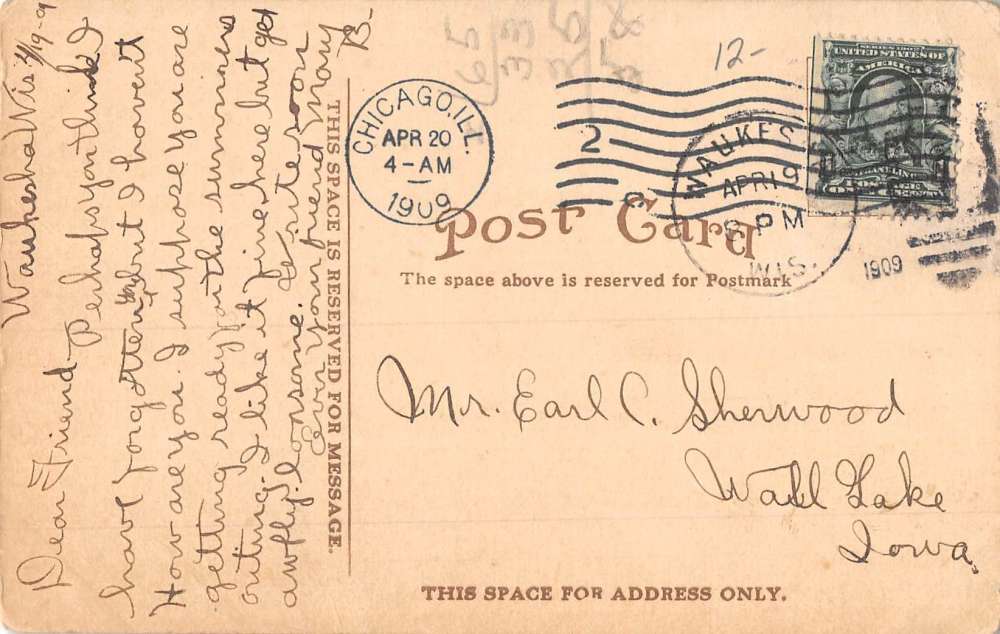 Waukesha Wis 4/19-9
Dear Friend- Perhaps you think I
have forgotten you but I haven't
How are you. I suppose you are
getting ready for the summers
outing. I like it fine here but get
awfly lonsome. Write soon
Ever your friend Mary
B-
THIS SPACE IS RESERVED FOR MESSAGE.
12-
CHICAGO, ILL.
APR 20
4-AM
1909
2
WAUKES
APR 19
PM
WIS.
1909
SERIES 1902
UNITED STATES OF
AMERICA
POSTAGE
Post Card
The space above is reserved for Postmark
Mr. Earl C. Sherwood
Wall Lake
Iowa,
THIS SPACE FOR ADDRESS ONLY.